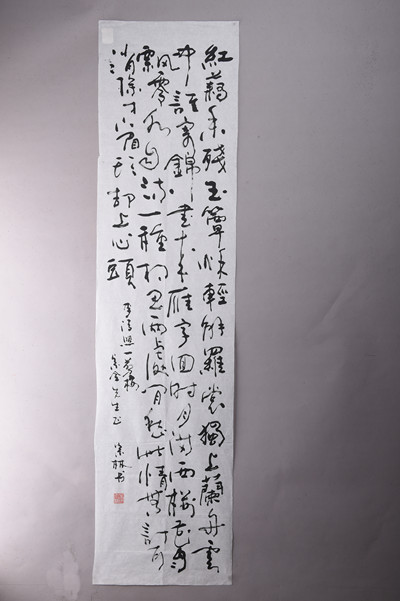 紅藕香殘玉簟秋輕解羅裳獨上蘭舟雲
中誰寄錦書來雁字回時月滿西樓花自
飄零水自流一種相思兩處閒愁此情無計可
消除才下眉頭却上心頭
李清照一剪梅
先生正
书